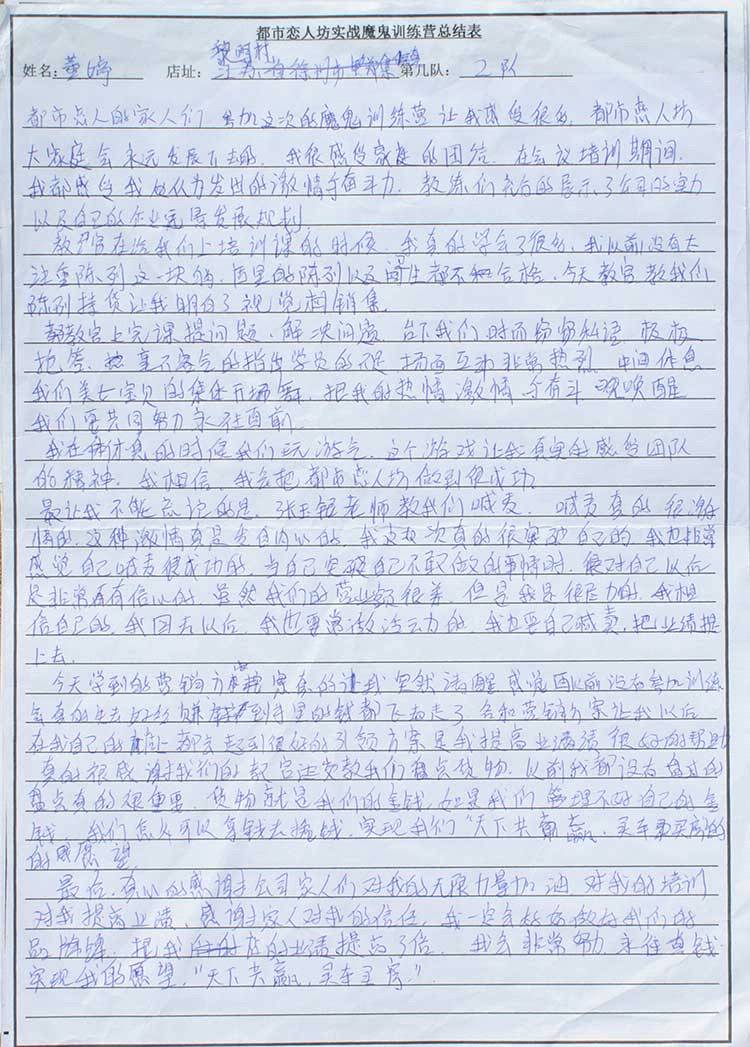 都市恋人坊实战魔鬼训练营总结表
黎明村
姓名: 董婷 店址: 江苏省徐州市 第几队: 2队
都市恋人的家人们 参加这次的魔鬼训练营 让我感受很多, 都市恋人坊
大家庭会永远发展下去的, 我很感受家庭的团结. 在会议培训期间,
我都感受 发出的激情与奋斗力. 教练们 的展示了公司的实力
以及自己的企业 发展规划
教官在给我们上培训课的时候. 我真的学会了很多, 我以前没有太
注重陈列这一块的, 店里的陈列以及 生都不 合格, 今天教官教我们
陈列持货让我明白了视觉 销售.
教官上完课提问题, 解决问题, 台下我们时而窃窃私语 极极
抢答, 毫不客气的指出学员的不足 场面互动非常热烈 中间休息
我们美女宝贝的集体开场舞, 把我的热情激情与奋斗 唤醒
我们要共同努力永往直前.
我在 休息的时候我们玩游 , 这个游戏让我真实我感受团队
的精神, 我相信, 我会把都市恋人坊做到很成功
最让我不能忘记的是, 张玉银老师教我们喊麦. 喊麦真的很激
情的, 这种激情真是发自内心的, 我这 次真的很突破自己的, 我也非常
感觉自己喊麦很成功的, 当自己突破自己不敢做的事情时, 很对自己以后
是非常有信心的 虽然我们的营业额很差, 但是我是很尽力的, 我相
信自己的, 我回去以后, 我也要常做活动的, 我也要自己喊卖, 把业绩提
上去.
今天学到的营销方 案真的让我突然清醒 感觉 以前没有参加训练
营真的失去好多 赚 到手里的钱都飞走了 会和营销方案让我以后
在我自己的店 都会起到很好的引领方案是我提高业绩 很好的帮助
真的很感谢我们的教官还实教我们盘点货物, 以前我都没有盘点的
盘点真的很重要, 货物就是我们的金钱, 如果我们管理不好自己的金
钱, 我们怎么可以拿钱去 钱, 实现我们“天下共赢, 买车买房的
的 愿望
最后 真心的感谢公司家人们对我的无限力量加油 对我的培训
对我提高业绩, 感谢家人对我的信任, 我一定会好好做好我们的
品牌 , 把我 店的业绩提高3倍. 我会非常努力 永往直
实现我的愿望, “天下共赢, 买车买房”.